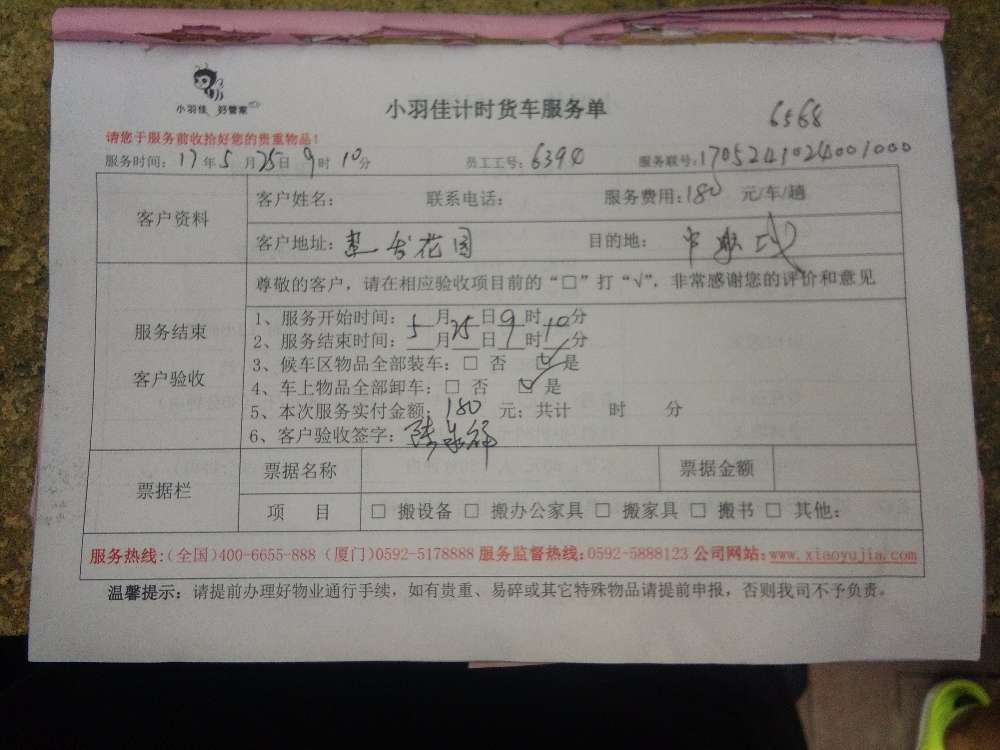 小羽佳 好管家
小羽佳计时货车服务单
6568
请您于服务前收拾好您的贵重物品！
服务时间：17年5月25日9时10分 员工工号：6390 服务联号：1705241024001000
客户资料 客户姓名： 联系电话： 服务费用：180 元/车/趟
客户地址：花园 目的地：
尊敬的客户，请在相应验收项目前的“□”打“√”，非常感谢您的评价和意见
服务结束
客户验收
1、服务开始时间：5月25日9时10分
2、服务结束时间：__月__日__时__分
3、候车区物品全部装车：□ 否 ☑ 是
4、车上物品全部卸车：□ 否 ☑ 是
5、本次服务实付金额：180 元；共计 时 分
6、客户验收签字：陈
票据栏 票据名称 票据金额
项 目 □ 搬设备 □ 搬办公家具 □ 搬家具 □ 搬书 □ 其他：
服务热线：（全国）400-6655-888（厦门）0592-5178888 服务监督热线：0592-5888123 公司网站：www.xiaoyujia.com
温馨提示：请提前办理好物业通行手续，如有贵重、易碎或其它特殊物品请提前申报，否则我司不予负责。